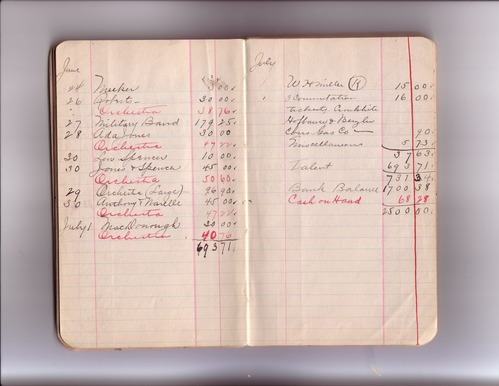 June
24 Meeker 30 00
26 Roberts 30 00
Orchestra 38 76
27 Military Band 179 25
28 Ada Jones 30 00
Orchestra 47 22
30 Len Spencer 10 00
30 Jones & Spencer 45 00
Orchestra 50 60
29 Orchestra (Large) 96 90
30 Anthony & 45 00
Orchestra 47 22
July 1 MacDonough 30 00
Orchestra 40 76
693 71
July
W H Miller (R) 15 00
Commutation 16 00
Tickets
Hofbauer &
Gas Co 90
Miscellaneous 5 73
37 63
Talent 693 71
731 34
Bank Balance 1700 38
Cash on Hand 68 28
2500 00